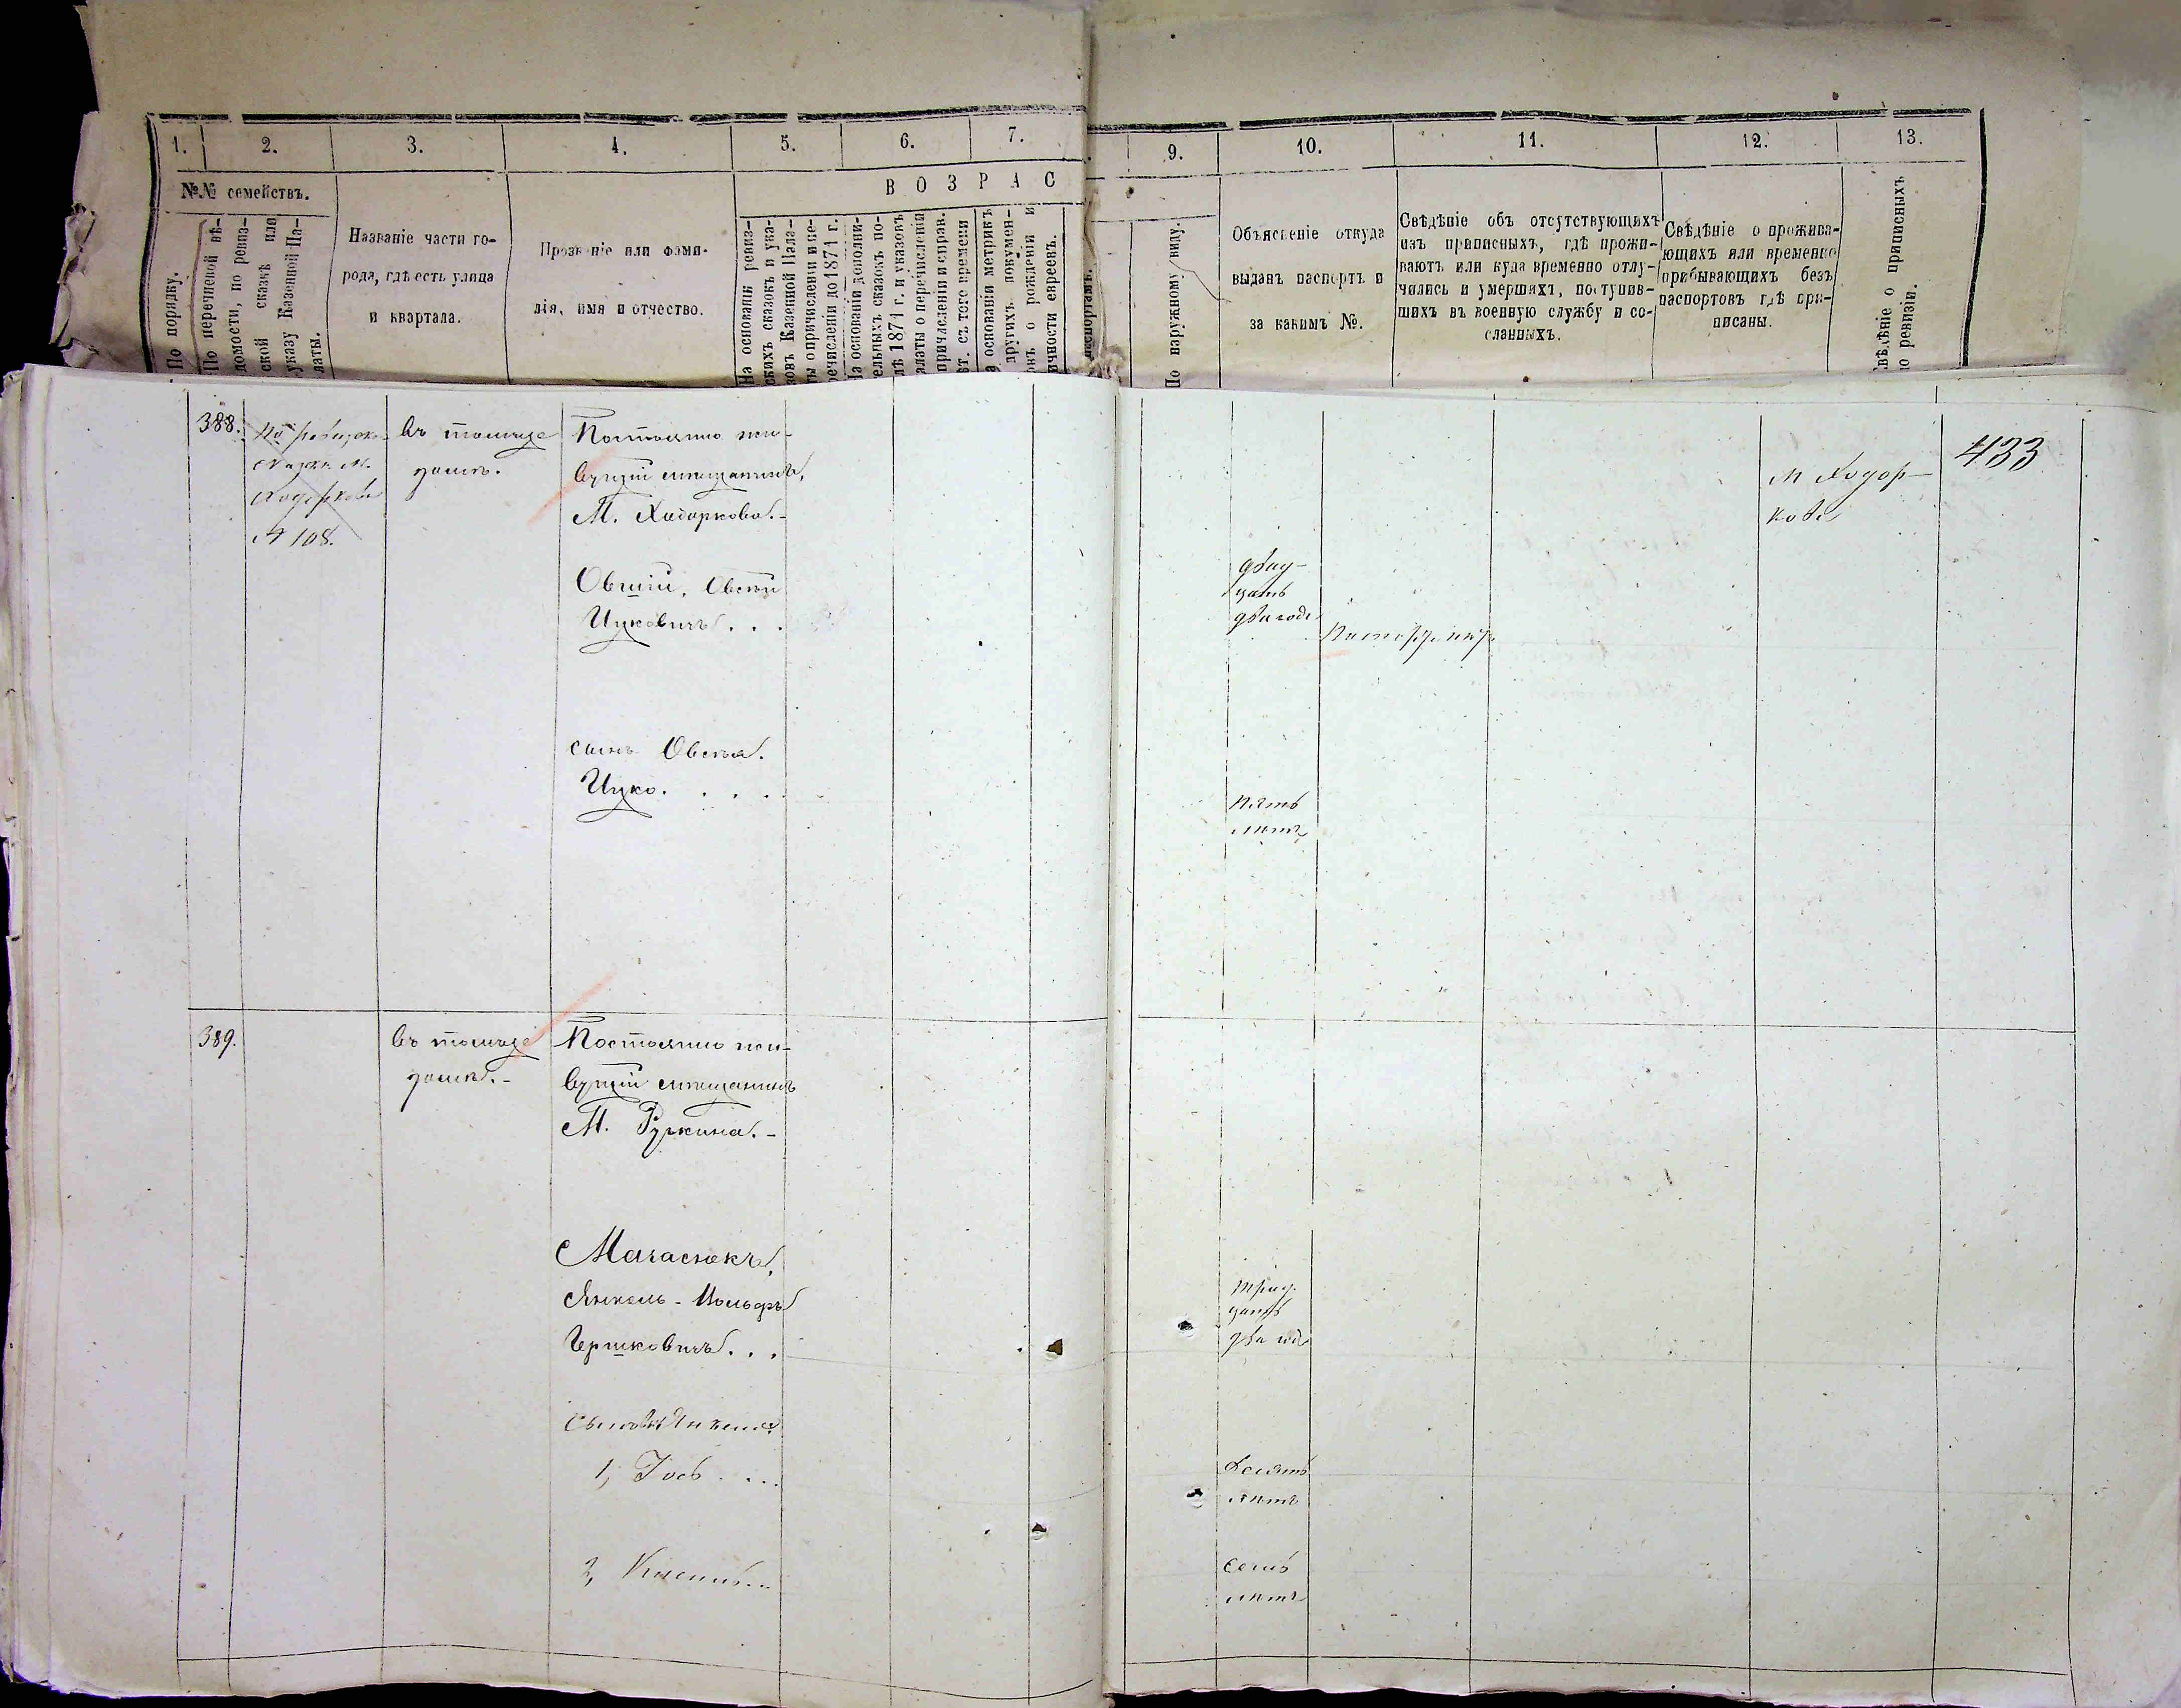 1.
2.
3.
4.
5.
6.
7.
9.
10.
11.
12.
13.
№№ семействъ.
По порядку.
По перечневой вѣ-
домости, по ревиз-
ской сказкѣ или
указу Казенной Па-
латы.
Названіе части го-
рода, гдѣ есть улица
и квартала.
Прозваніе или фами-
лія, имя и отчество.
ВОЗРАС
На основаніи ревиз-
скихъ сказокъ и ука-
зовъ Казенной Пала-
ты о причисленіи и пе-
речисленіи до 1871 г.
На основаніи дополни-
тельныхъ сказокъ по-
слѣ 1871 г. и указовъ
Палаты о перечисленіи
причисленіи и справ.
съ того времени
основаніи метрикъ
другихъ докумен-
о рожденіи и
личности евреевъ.
паспортамъ.
По наружному виду.
Объясненіе откуда
выданъ паспортъ и
за какимъ №.
Свѣдѣніе объ отсутствующихъ
изъ приписныхъ, гдѣ прожи-
ваютъ или куда временно отлу-
чились и умершихъ, поступив-
шихъ въ военную службу и со-
сланныхъ.
Свѣдѣніе о прожива-
ющихъ или временно
прибывающихъ безъ
паспортовъ гдѣ при-
писаны.
Свѣдѣніе о приписныхъ
по ревизіи.
433
388.
По ревизск.
сказкѣ м.
Ходоркова
№ 108.
въ томъ же
домѣ.
Постоянно жи-
вущій мѣщанинъ,
М. Ходоркова.-
Овшій, Овсѣй
Ицковичъ . . .
двад-
цать
два года
М Ходор-
кова
сынъ Овсѣя.
Ицко. . . .
Пять
лѣтъ
389.
въ томъ же
домѣ.-
Постоянно жи-
вущій мѣщанинъ
М. Ружина.-
Янкель-
Гершковичъ . . .
трид-
цать
два года
Сыновья Янкеля
1, Іось . . .
Десять
лѣтъ
2,
Семь
лѣтъ